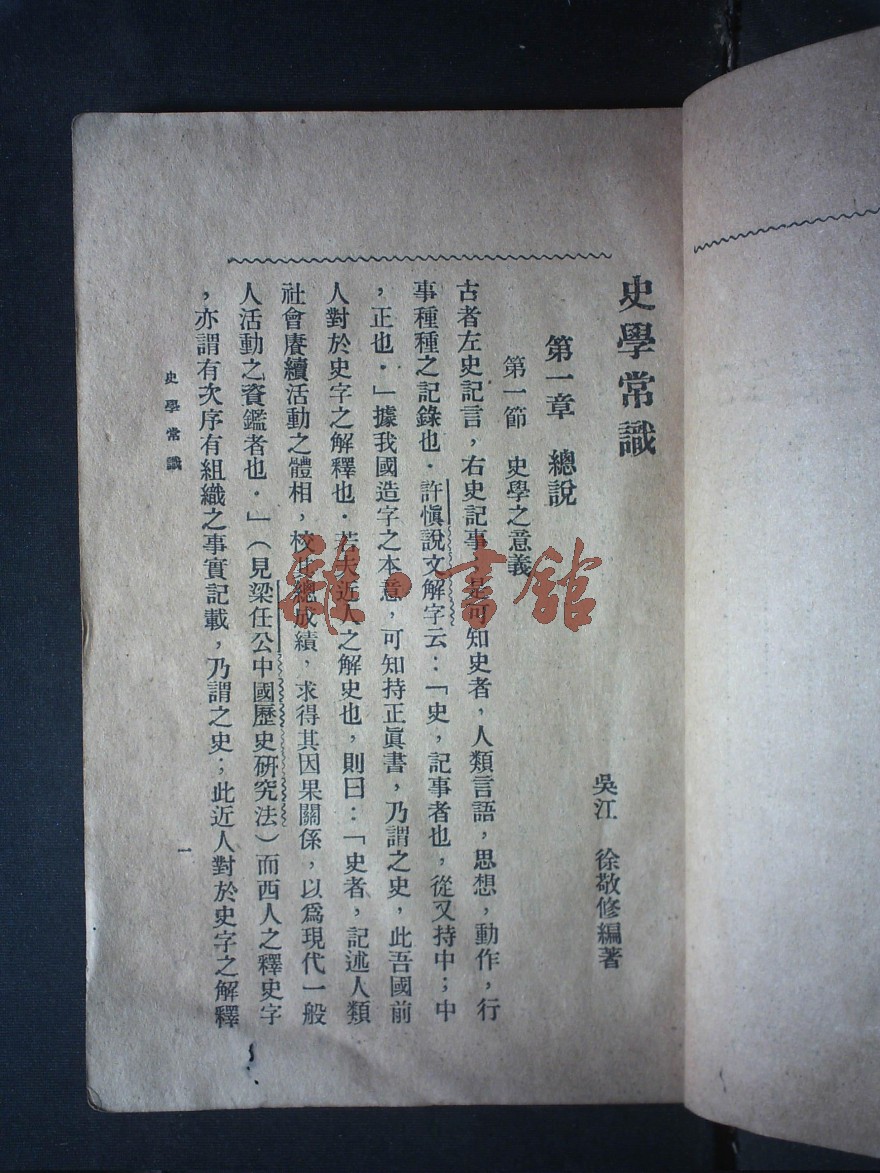 史學常識
吳江　徐敬修編著
第一章　總說
第一節　史學之意義
古者左史記言，右史記事，是可知史者，人類言語，思想，動作，行
事種種之記錄也．許愼說文解字云：「史，記事者也，從又持中；中
，正也．」據我國造字之本意，可知持正眞書，乃謂之史，此吾國前
人對於史字之解釋也．若夫近人之解史也，則曰：「史者，記述人類
社會賡續活動之體相，校其總成績，求得其因果關係，以爲現代一般
人活動之資鑑者也．」（見梁任公中國歷史研究法）而西人之釋史字
，亦謂有次序有組織之事實記載，乃謂之史；此近人對於史字之解釋
史學常識
一
雜·書館